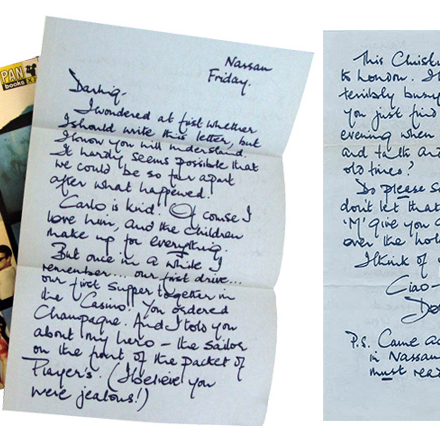 PAN
books
Nassau
Friday.
Darling-
I wondered at first whether
I should write this letter, but
I know you will understand.
It hardly seems possible that
we could be so far apart
after what happened.
Carlo is kind. Of course I
love him, and the children
make up for everything.
But once in a while I
remember... our first drive...
our first supper together in
the Casino. You ordered
Champagne. And I told you
about my hero - the sailor
on the front of the packet of
Player's. (I believe you
were jealous!)
This Christ
to London. I
terribly busy
you just find
evening when
and talk an
old times?
Do please s
don't let that
'M' give you
over the hol
I think of
Ciao-
Do
P.S. Came ac
in Nassau
must rea